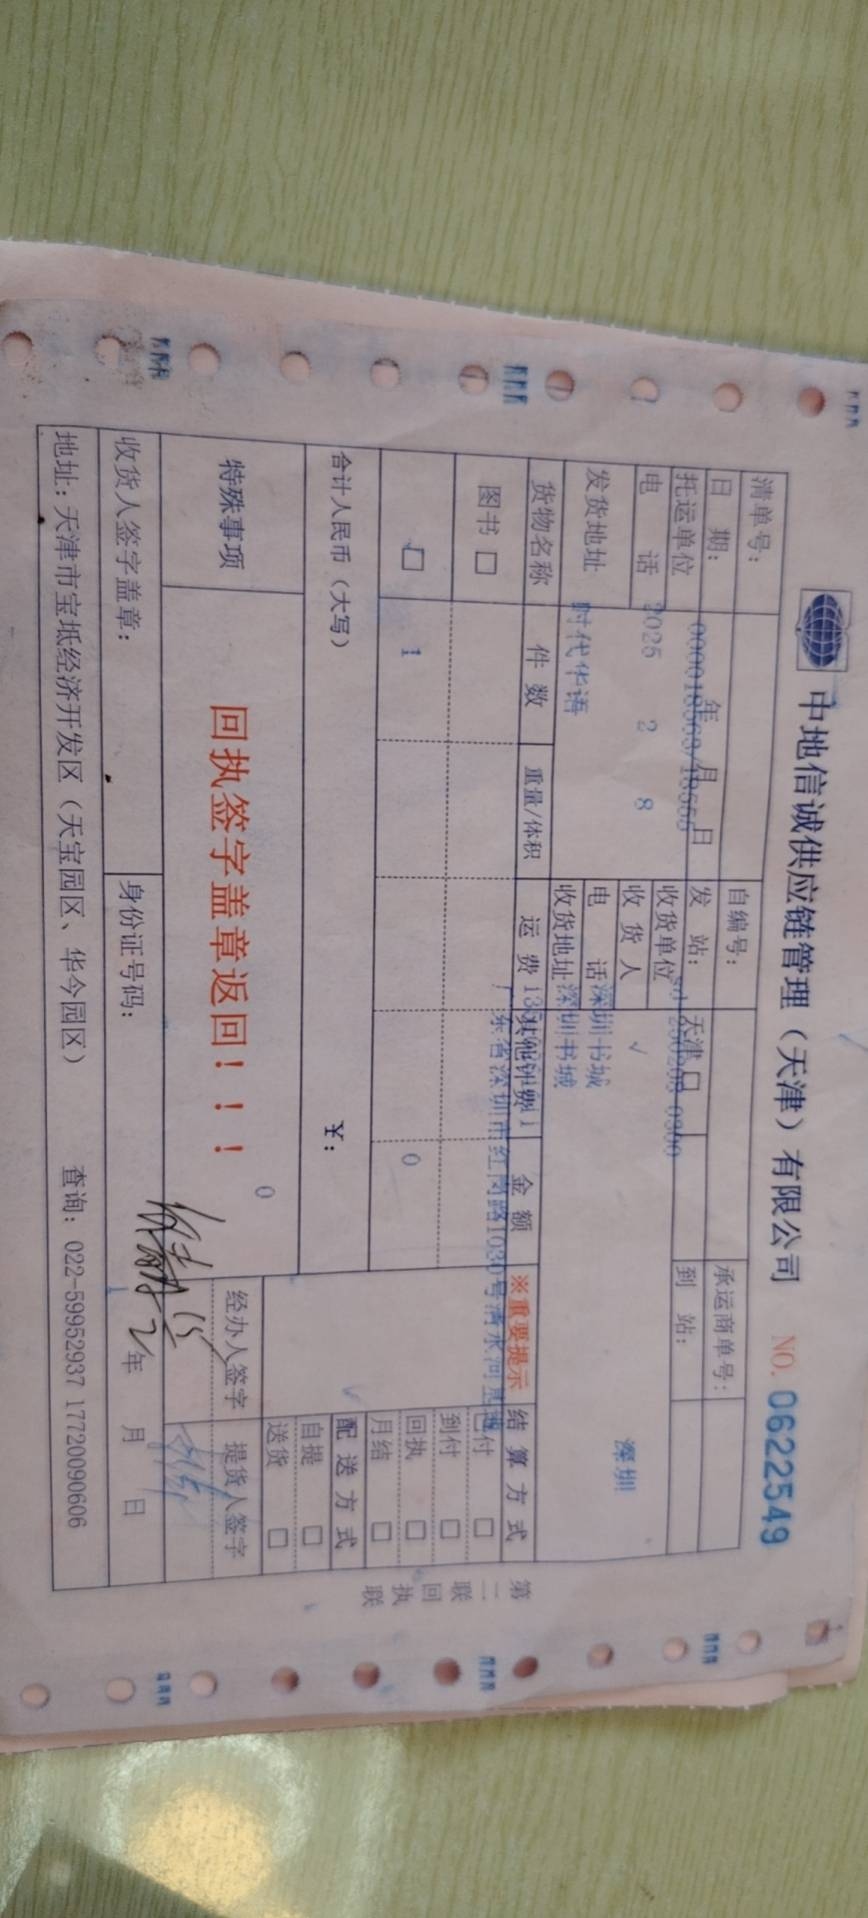 中地信诚供应链管理（天津）有限公司 NO. 0622549
清单号： 自编号： 承运商单号：
日 期： 年 月 日 发 站： 天津 到 站：
托运单位 收货单位
电 话 2025 2 8 收 货 人 √ 深圳
发货地址 时代华语 电 话 深圳书城
收货地址 深圳书城
货物名称 件 数 重量/体积 运 费 金 额 ※重要提示 结 算 方 式
图书 □ 到付 □
□ 1 0 回执 □
月结 □
合计人民币（大写） ￥： 配 送 方 式
自提 □
0 送货 □
特殊事项 回执签字盖章返回！！！ 经办人签字 提货人签字
收货人签字盖章： 身份证号码： 年 月 日
地址：天津市宝坻经济开发区（天宝园区、华今园区） 查询：022-59952937 17720090606
第二联 回执联